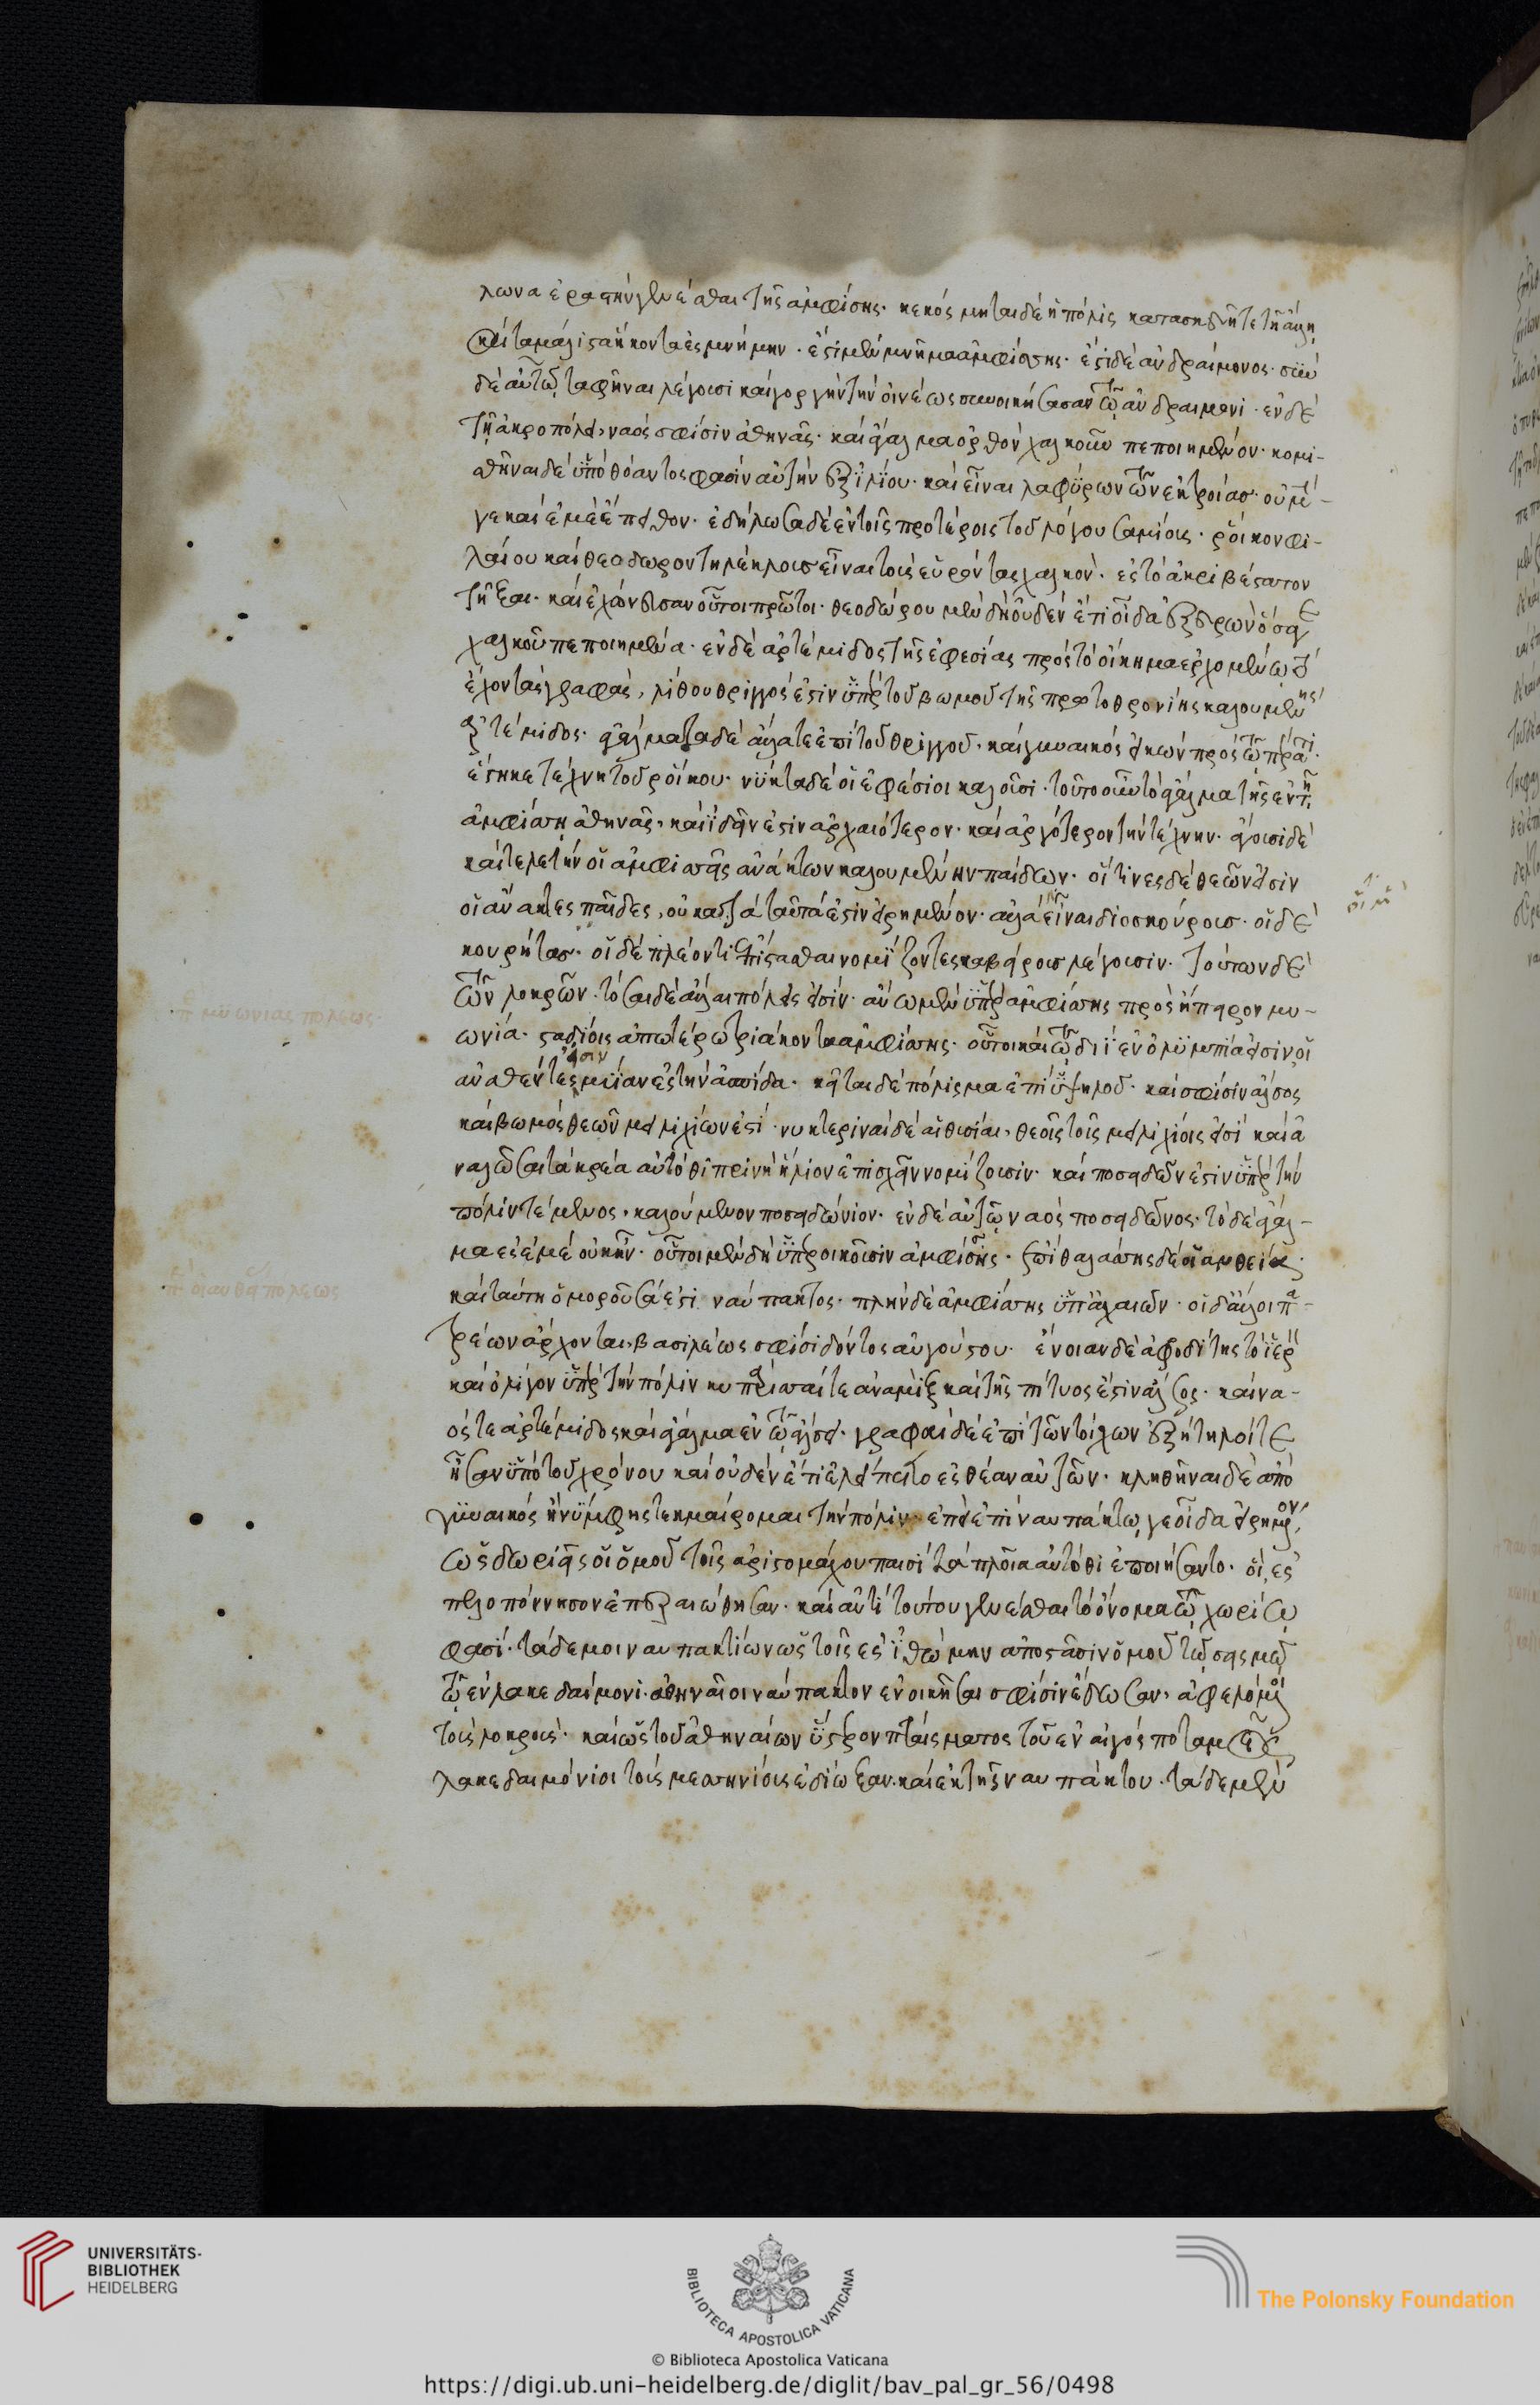 λωνα ἐραστὴν γενέσθαι τῆς ἀμφίσσης· κεκόσμηται δὲ ἡ πόλις κατασκευῆ τε τῆ ἄλλη
καὶ τὰ μάλιστα ἥκοντα ἐς μνήμην· ἔστι μὲν μνῆμα ἀμφίσσης· ἔστι δὲ ἀνδραίμονος· σὺν
δὲ αὐτῷ ταφῆναι λέγουσι καὶ γοργὴν τὴν οἰνέως συνοικήσασαν τῷ ἀνδραιμονι· ἐν δὲ
τῇ ἀκροπόλει, ναός σφίσιν ἀθηνᾶς· καὶ ἄγαλμα ὀρθὸν χαλκοῦ πεποιημένον· κομι-
σθῆναι δὲ ὑπὸ θόαντος φασὶν αὐτὴν ἐξ ἰλίου· καὶ εἶναι λαφύρων τῶν ἐκ τροίασ· οὐ μέν
γε καὶ ἐμὲ ἔπειθον· ἐδήλωσα δὲ ἐν τοῖς προτέροις τοῦ λόγου σαμίους· ῥοίκον φι-
λαίου καὶ θεοδωρον τηλεκλουσ εἶναι τοὺς εὑρόντας χαλκὸν· ἐς τὸ ἀκριβέστατον
τῆξαι· καὶ ἐχώνευσαν οὗτοι πρῶτοι· θεοδώρου μὲν δὴ οὐδὲν ἔτι οἶδα ἐξευρὼν ὅσα γε
χαλκοῦ πεποιημένα· ἐν δὲ ἀρτέμιδος τῆς ἐφεσίας πρὸς τὸ οἴκημα ἐρχομένῳ τὸ
ἔχον τὰς γραφὰς, λίθου θριγγός ἐστιν ὑπὲρ τοῦ βωμοῦ τῆς πρωτοθρονίης καλουμένης
ἀρτέμιδος· ἀγάλματα δὲ ἄλλα τε ἐπὶ τοῦ θριγγοῦ, καὶ γυναικὸς εἰκὼν πρὸς τῷ πέρατι
ἕστηκε τέχνη τοῦ ῥοίκου· νύκτα δὲ οἱ ἐφέσιοι καλοῦσι· τοῦτο οὖν τὸ ἄγαλμα τῆς ἐν τῆ
ἀμφίσση ἀθηνᾶς, καὶ ἰδεῖν ἐστιν ἀρχαιότερον· καὶ ἀργότερον τὴν τέχνην· ἄγουσι δὲ
καὶ τελετὴν οἱ ἀμφισσεῖς ἀνάκτων καλουμένην παίδων· οἵτινες δὲ θεῶν εἰσιν
οἱ ἄνακτες παῖδες, οὐ κατὰ ταῦτά ἐστιν εἰρημένον· ἀλλὰ εἶναι διοσκούρουσ· οἱ δὲ
κουρήτασ· οἱ δὲ πλέον τι ἐπίστασθαι νομίζοντες καβείρουσ λέγουσιν· τούτων δὲ
τῶν λοκρῶν· τοσαίδε ἄλλαι πόλεις εἰσίν· ἄνω μὲν ὑπὲρ ἀμφίσσης πρὸς ἤπειρον μυ-
ωνία· σταδίοις ἀπωτέρω τριάκοντα ἀμφίσσης· οὗτοι καὶ τῷ διῒ ἐν ὀλυμπία εἰσὶν οἱ
ἀναθέντες μυίαν ἐς τὴν ἀσπίδα· κεῖται δὲ πόλισμα ἐπὶ ὑψηλοῦ· καὶ σφίσιν ἄλσος
καὶ βωμὸς θεῶν μειλιχίων ἐστί· νυκτεριναὶ δὲ αἱ θυσίαι, θεοῖς τοῖς μειλιχίοις εἰσί καὶ ἀ
ναλῶσαι τὰ κρέα αὐτόθι πρινὴ ἥλιον ἐπισχεῖν νομίζουσιν· καὶ ποσειδῶν ἐστιν ὑπὲρ τὴν
πόλιν τέμενος, καλούμενον ποσειδώνιον· ἐν δὲ αὐτῷ ναὸς ποσειδῶνος· τὸ δὲ ἄγαλ-
μα ἐς ἐμὲ οὐκ ἦν· οὗτοι μὲν δὴ ὑπεροικοῦσιν ἀμφίσσης· ἐπὶ θαλάσσης δὲ οἰανθείας
καὶ ταύτη ὁμοροῦσά ἐστι ναύπακτος· πλὴν δὲ ἀμφίσσης ὑπ' ἀχαιῶν· οἱ δ' ἄλλοι πα-
τρέων ἄρχονται, βασιλέως σφίσι δόντος αὐγούστου· ἔνοιαν δὲ ἀφροδίτης τὸ ἱερὸν
καὶ ὀλίγον ὑπὲρ τὴν πόλιν κυπαρίσσου τε ἀναμὶξ καὶ τῆς πίτυος ἐστὶν ἄλσος· καὶ να-
ός τε ἀρτέμιδος καὶ ἄγαλμα ἐν τῷ ἄλσει· γραφαὶ δὲ ἐπὶ τῶν τοίχων ἐξίτηλοί τε
ἦσαν ὑπὸ τοῦ χρόνου καὶ οὐδὲν ἔτι ἐλείπετο ἐς θέαν αὐτῶν· κληθῆναι δὲ ἀπὸ
γυναικὸς ἢ νύμφης τεκμαίρομαι τὴν πόλιν· ἐπεὶ ἐπὶ ναυπάκτω γε οἶδα εἰρημένον
ὡς δωριεῖς οἱ ὁμοῦ τοῖς ἀριστομάχου παισὶ τὰ πλοῖα αὐτόθι ἐποιήσαντο· οἷ, ἐς
πελοπόννησον ἐπεραιώθησαν· καὶ ἀντὶ τούτου γενέσθαι τὸ ὄνομα τῷ χωρίω
φασί· τὰ δέ μοι ναυπακτίων ὡς τοῖς ἐς ἰθώμην ἀποστᾶσιν ὁμοῦ τῷ σεισμῷ
τῷ ἐν λακεδαίμονι· ἀθηναῖοι ναύπακτον ἐνοικῆσαι σφίσιν ἔδωσαν, ἀφελόμενοι
τοὺς λοκροὺς· καὶ ὡς τοῦ ἀθηναίων ὕστερον πταίσματος τοῦ ἐν αἰγὸς ποταμοῖς
λακεδαιμόνιοι τοὺς μεσσηνίους ἐδίωξαν· καὶ ἐκ τῆς ναυπάκτου· τὰ δέ μὲν
π μυωνίας πόλεως
π οἰανθείας πόλεως
UNIVERSITÄTS-
BIBLIOTHEK
HEIDELBERG
BIBLIOTECA APOSTOLICA VATICANA
The Polonsky Foundation
© Biblioteca Apostolica Vaticana
https://digi.ub.uni-heidelberg.de/diglit/bav_pal_gr_56/0498